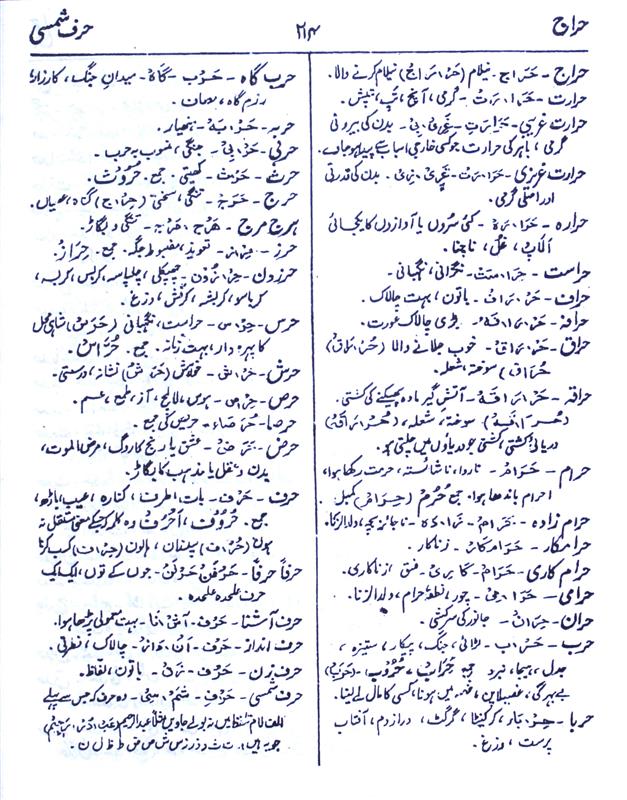 حراج
۲۱۴
حرف شمسی
حراج - حَرَاج - نیلام (حَرْ رَاج) نیلام کرنے والا.
حرارت - حَرَارَت - گرمی، آنچ، تپ، تپش.
حرارت غریبی - حَرَارَتِ - غَرِی بِی - بدن کی بیرونی
گرمی، باہر کی حرارت جو کسی خارجی اسباب سے پیدا ہو جاوے.
حرارت غریزی - حَرَارَتِ - غَرِی زِی. بدن کی قدرتی
اور اصلی گرمی.
حرارہ - حَرَارَہ - کئی سُروں یا آوازوں کا یکجائی
الاپ، غُل، ناچنا.
حراست - حِرَاسَت - نگرانی، نگہبانی.
حراف - حَرْ رَاف - باتونی، بہت چالاک.
حرافہ - حَرْ رَافَہ - بڑی چالاک عورت.
حراق - حَرْ رَاق - خوب جلانے والا (حُرْ رَاق)
(حُرَاق) سوختہ، شعلہ.
حراقہ - حَرْ رَاقَہ - آتش گیر مادہ پھینکنے کی کشتی.
سوختہ، شعلہ، (حُرْ رَاقَہ)
دریائی کشتی، کشتی جو دریاؤں میں چلتی ہو.
حرام - حَرَام - ناروا، ناشائستہ، حرمت رکھا ہوا،
احرام باندھا ہوا. جمع حُرُم (حِرَام) کمبل.
حرام زادہ - حَرَام - زَادَہ - ناجائز بچہ، ولد الزنا.
حرامکار - حَرَام کَار - زناکار.
حرام کاری - حَرَام - کَارِی - فسق، زناکاری.
حرامی - حَرَامِی - چور، نطفۂ حرام، ولد الزنا.
حران - حِرَان - جانور کی سرکشی.
حرب - حَرْب - لڑائی، جنگ، پیکار، ستیزہ،
جدل، ہیجا، نبرد جمع حُرُوب (حَرَب)
بے بہرگی، غضبناکی، غصہ میں ہونا، کسی کا مال لے لینا.
حربا - حِرْبَار، کرکٹیا، گرگٹ، درازدم، آفتاب
پرست، وزغ.
حرب گاہ - حَرْب - گَاہ - میدان جنگ، کارزار،
رزم گاہ،
حربہ - حَرْبَہ - ہتھیار.
حربی - حَرْبِی - جنگی، منسوب بہ حرب.
حرث - حَرْث - کھیتی. جمع. حُرُوث.
حرج - حَرَج - تنگی، سختی (حِرْج) گناہ، عیاں.
ہرج مرج - ھَرْج مَرْج - تنگی و بگاڑ.
حرز - حِرْز - تعویذ، مضبوط جگہ. جمع. حِرَاز.
حرزون - حِرْ زُون - چھپکلی، چلپاسہ، کربس، کربسہ،
کرباسو، کربشہ، کرفش، وزغ.
حرس - حِرْس - حراست، نگہبانی (حَرَس) شاہی محل
کا پہرہ دار، بہت زمانہ. جمع. حُرَّاس.
حرش - حَرْش - خراش (حَرَش) نشانہ، درستی.
حرص - حِرْص - ہوس، لالچ، آز، طمع،
حرصا - حُرَصَاء - حریص کی جمع.
حرض - حَرَض - عشق یا رنج کا روگ، مرض الموت،
بدن و عقل یا مذہب کا بگاڑ.
حرف - حَرْف - بات، طرف، کنارہ، عیب، باڑھ،
جمع. حُرُوف، اَحْرُف وہ کلمہ کہ جسکے معنی مستقل نہ
ہوں (حُرْف) سپندان، ہالون (حِرْف) کسب کرنا
حرفاً حرفاً - حَرْفَن حَرْفَن - جوں کے توں، ایک ایک
حرف علیحدہ علیحدہ.
حرف آشنا - حَرْف - آشْ نَا - بہت معمولی پڑھا ہوا.
حرف انداز - حَرْف - اَنْ دَاز - چالاک، فطرتی.
حرف زن - حَرْف - زَن - باتونی، لفاظ.
حرف شمسی - حَرْفِ - شَمْ سِی - وہ حرف کہ جس سے پہلے
الف لام تلفظ میں نہ بولے جاویں مثلاً عبد الرحیم (عَبْدُرْ رَحِیم)
جو یہ ہیں. ت ث د ذ ر ز س ش ص ض ط ظ ل ن.